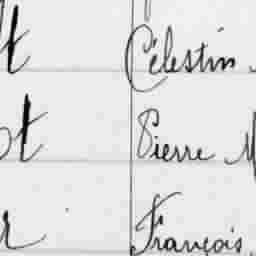 t Célestin
t Pierre M
r François